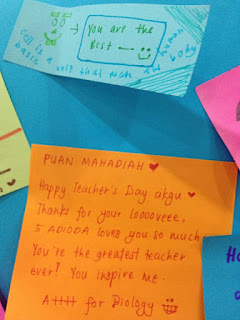 You are the
Best
Cell is a
basic unit that make
human
body
PUAN MAHADIAH ♥
Happy Teacher's Day cikgu ♥
Thanks for your looooveee,
loves you so much
You're the greatest teacher
ever! You inspire me.
A++++ for Biology